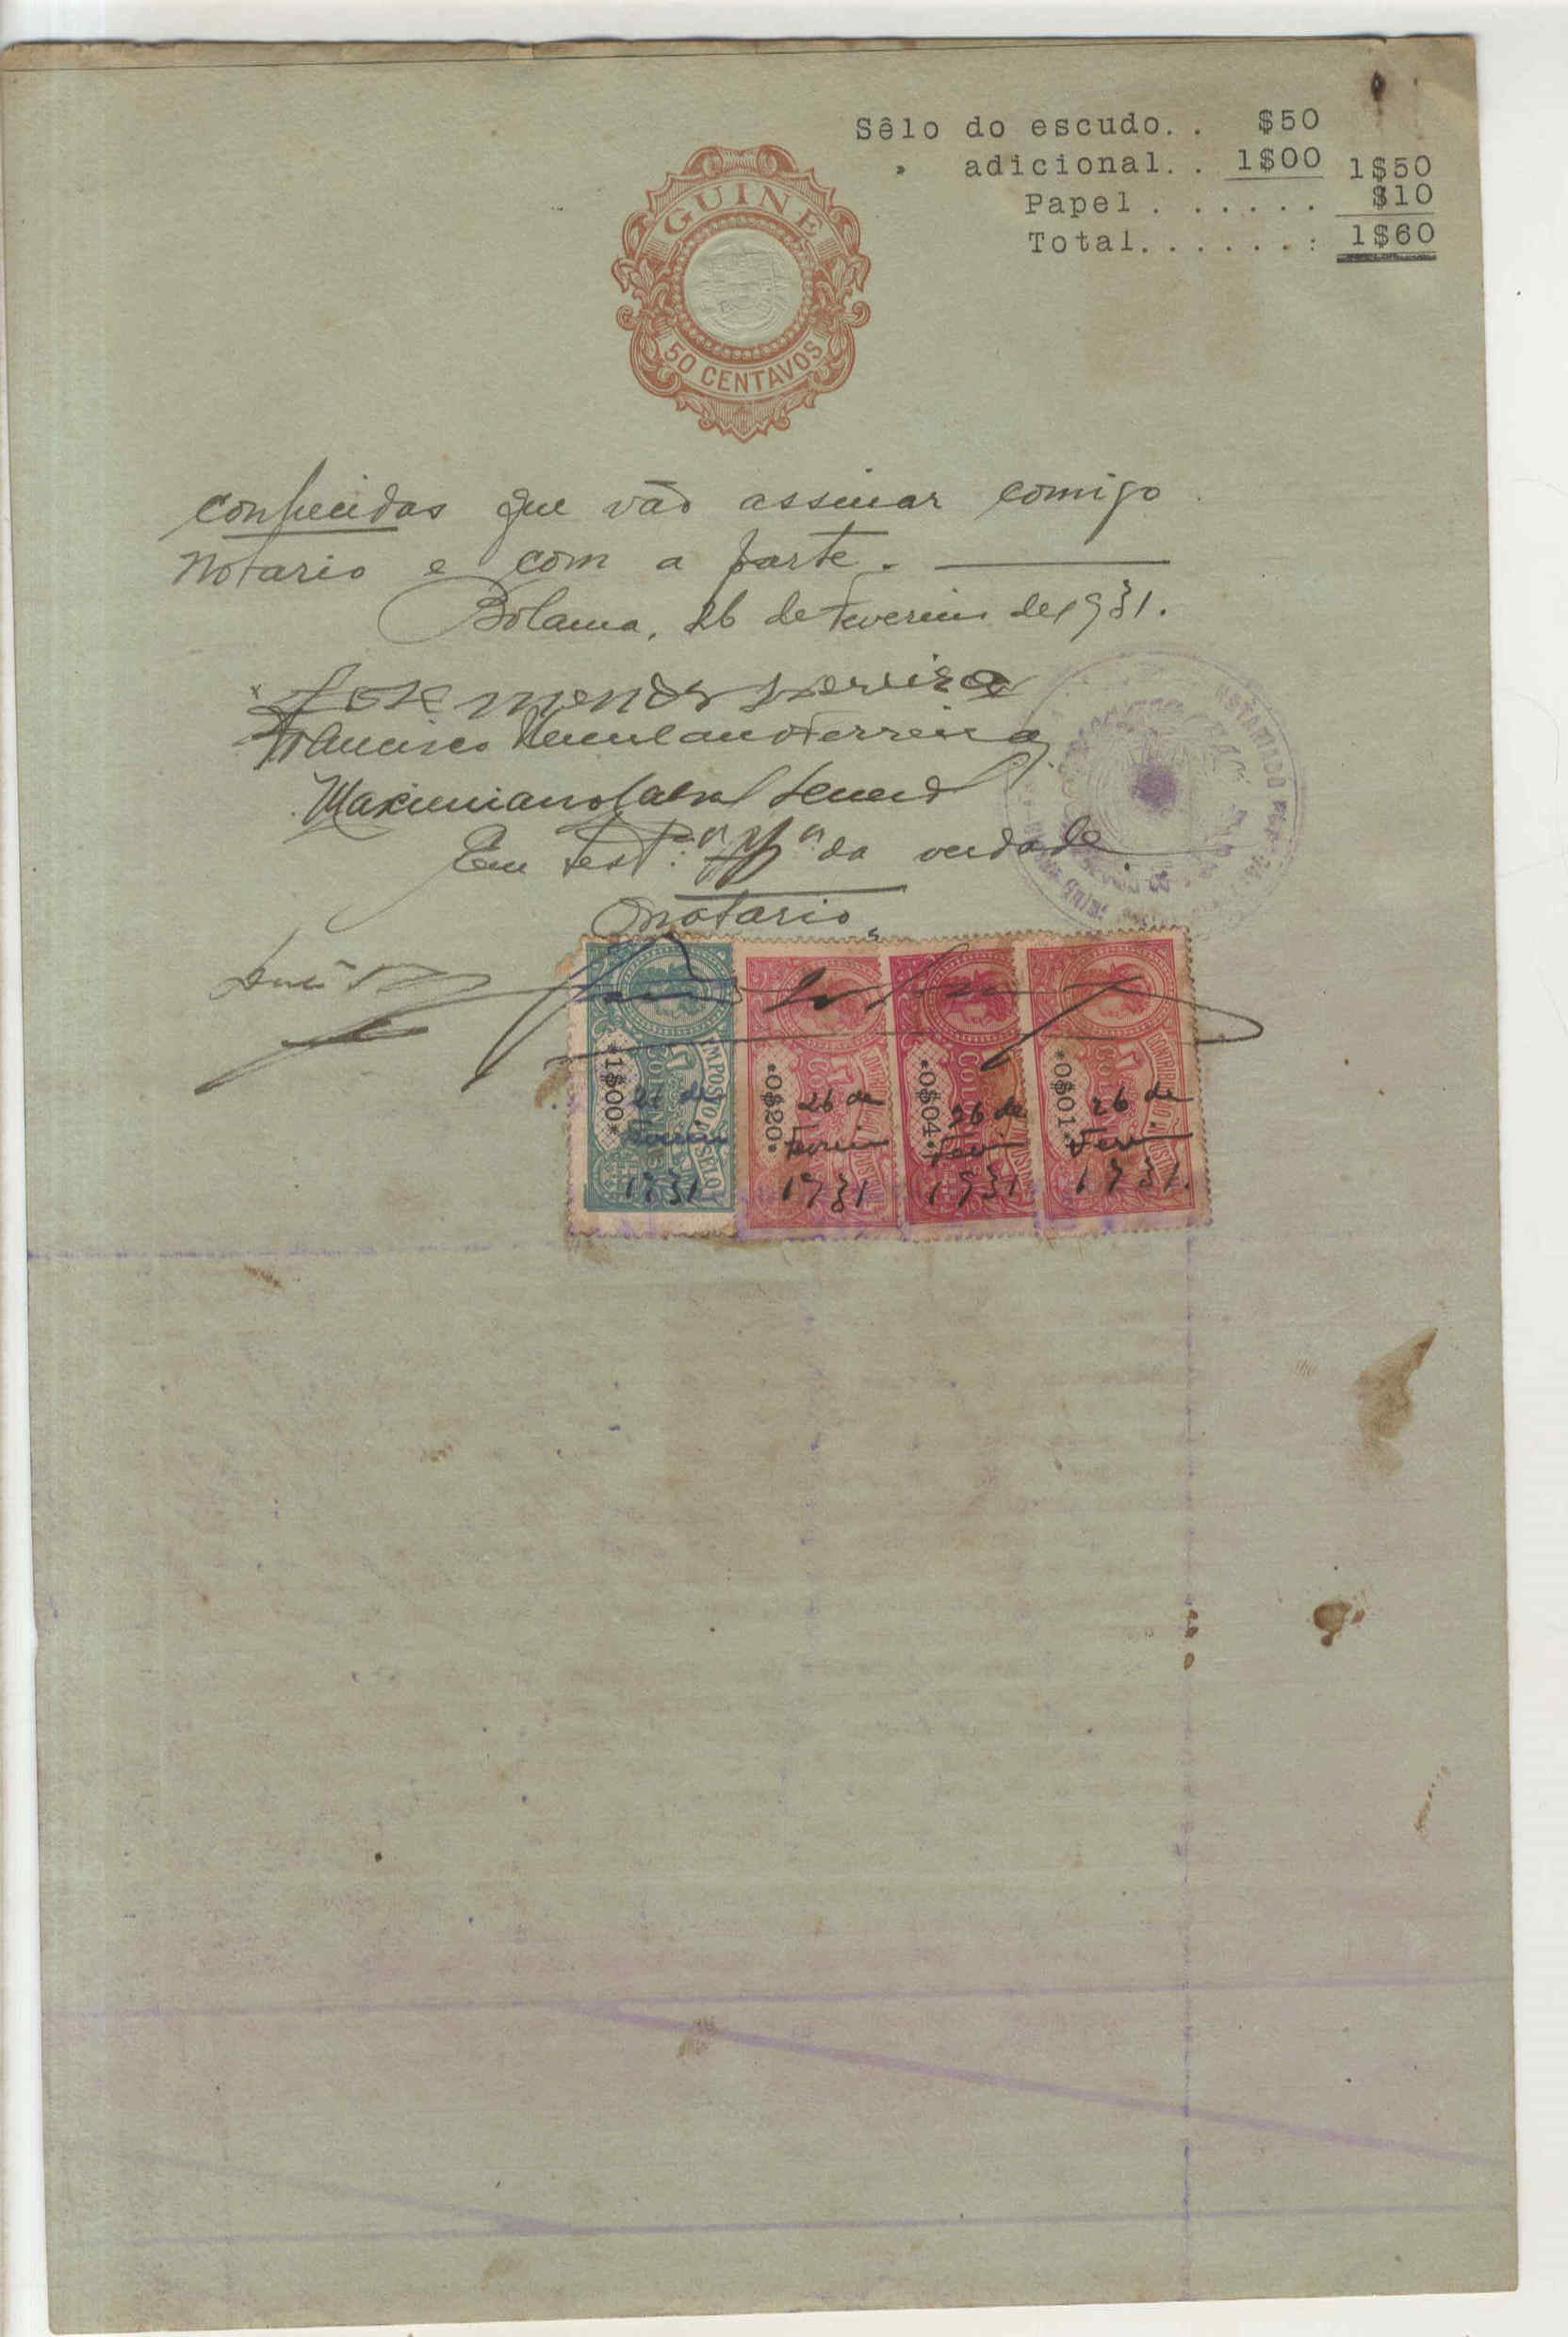 Sêlo do escudo. . $50
" adicional. . 1$00 1$50
Papel . . . . . . $10
Total. . . . . . . : 1$60
GUINÉ
50 CENTAVOS
conhecidas que vão assinar comigo
notario e com a parte.
Bolama, 26 de Fevereiro de 1931.
José Mendes Pereira
Francisco Herculano Ferreira
Maximiano Cabral
Em test.º da verdade.
O notario,
IMPOSTO DO SELO
*1$00* *0$20* *0$04* *0$01*
26 de 26 de 26 de 26 de
Fevereiro Fevereiro Fev. Fev.
1931 1931 1931 1931.